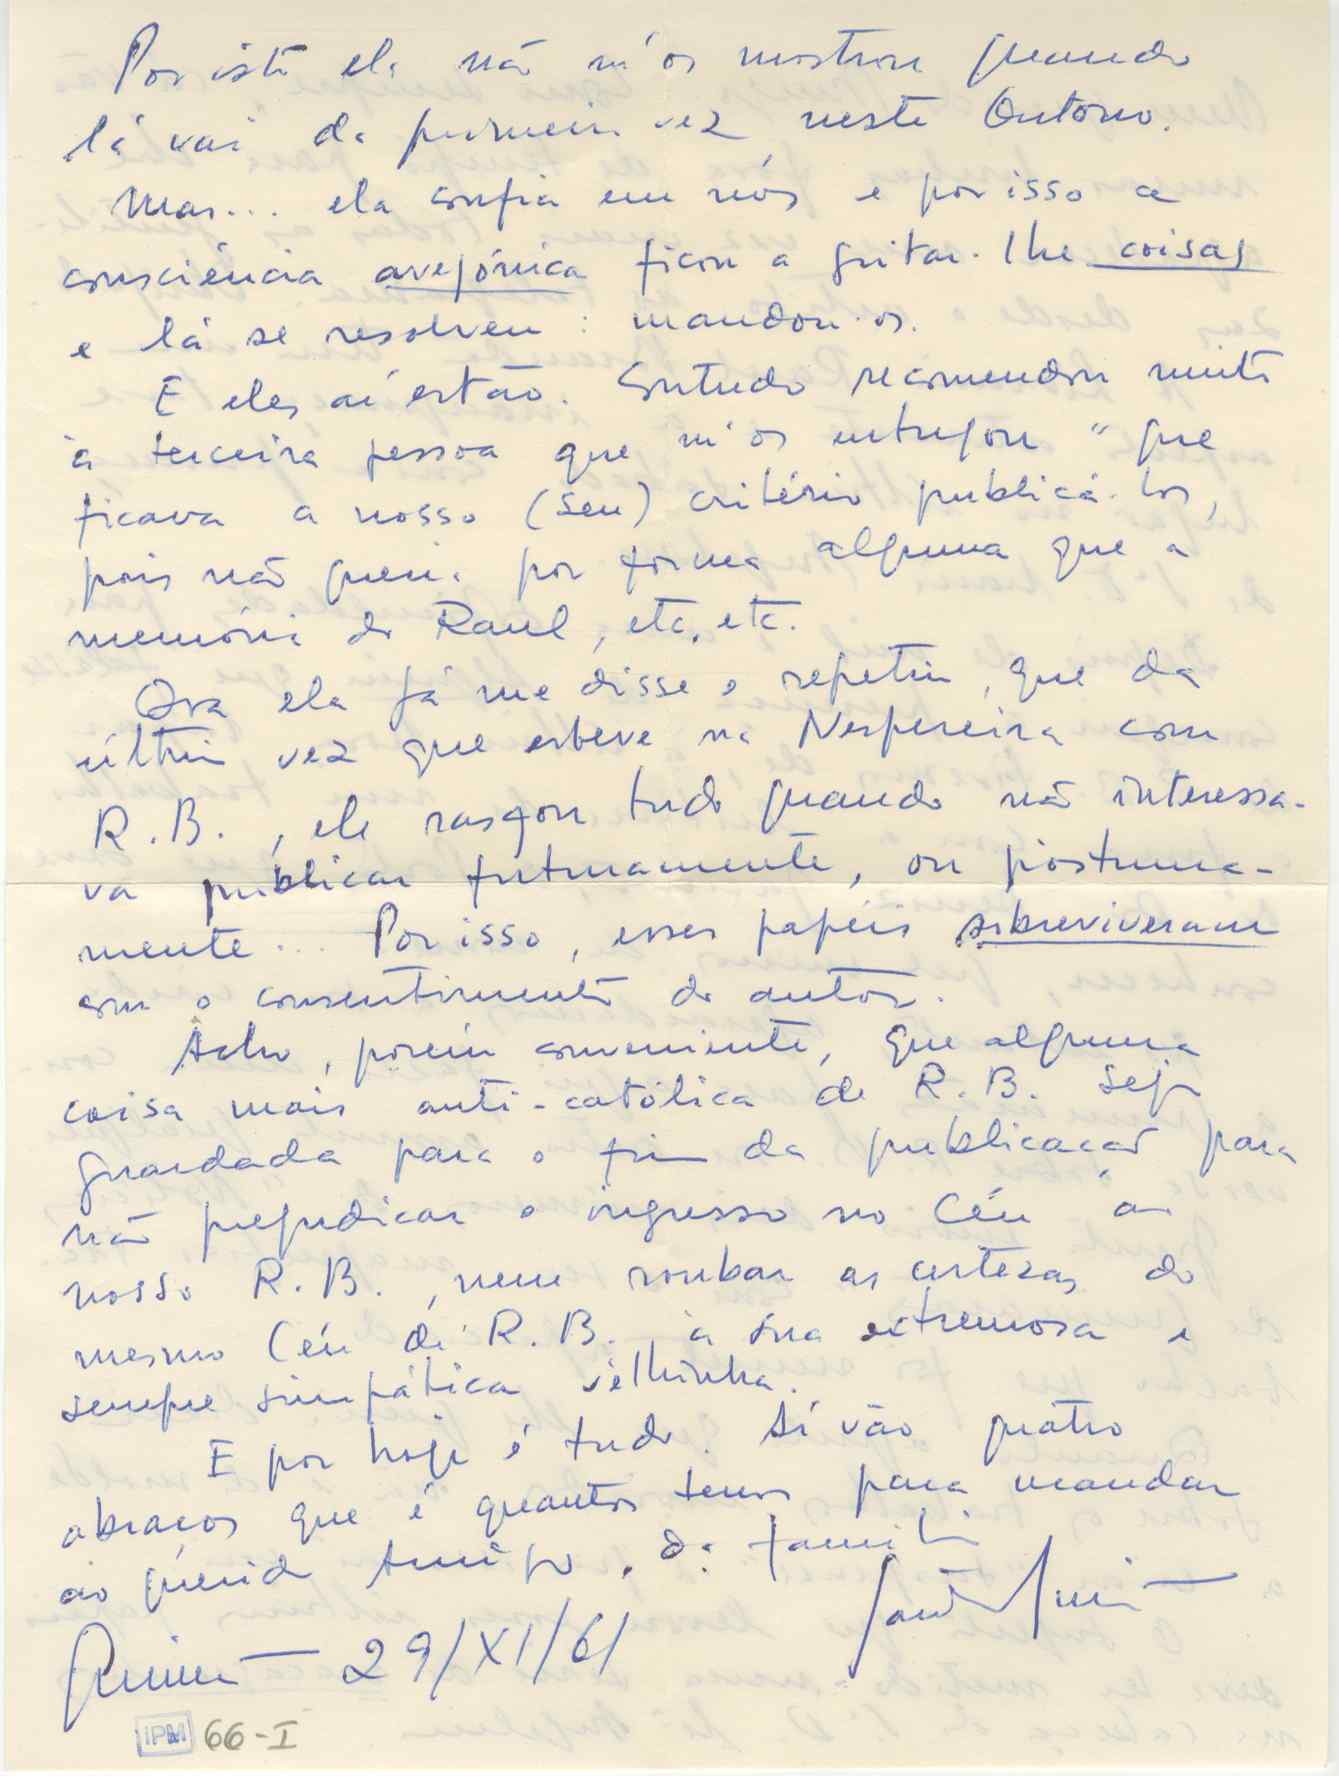 Por isto ela não m'os mostrou quando
lá vai da primeira vez neste Outono.
Mas... ela confia em nós e por isso a
consciência avejónica ficou a gritar-lhe coisas
e lá se resolveu: mandou-os.
E eles aí estão. Contudo recomendou muito
à terceira pessoa que m'os entregou "que
ficava a nosso (seu) critério publicá-los,
pois não queria por forma alguma que a
memória do Raul, etc, etc.
Ora ela já me disse e repetiu, que da
última vez que esteve na Nespereira com
R.B., ele rasgou tudo quando não interessa-
va publicar futuramente, ou póstuma-
mente... Por isso, esses papéis sobreviveram
com o consentimento do autor.
Acho, porém conveniente, que alguma
coisa mais anti-católica de R.B. seja
guardada para o fim da publicação para
não prejudicar o ingresso no Céu ao
nosso R.B., nem roubar as certezas do
mesmo Céu de R.B., à sua extremosa e
sempre simpática velhinha.
E por hoje é tudo. Aí vão quatro
abraços que é quantos temos para mandar
ao querido Amigo, da família
Guimarães 29/XI/61
IPM 66-I